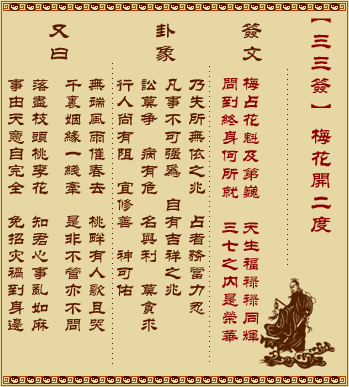 【三三簽】 梅花開二度
簽文
梅占花魁及第巍 天生福祿祿同輝
問到終身何所就 三七之內是榮華
卦象
乃失所無依之兆 占者務當力忍
凡事不可強爲 自有吉祥之兆
訟莫爭 病有危 名與利 莫貪求
行人尚有阻 宜修善 神可佑
又曰
無端風雨催春去 桃畔有人歌且哭
千裏姻緣一綫牽 是非不管亦不問
落盡枝頭桃李花 知君心事亂如麻
事由天意自完全 免招災禍到身邊